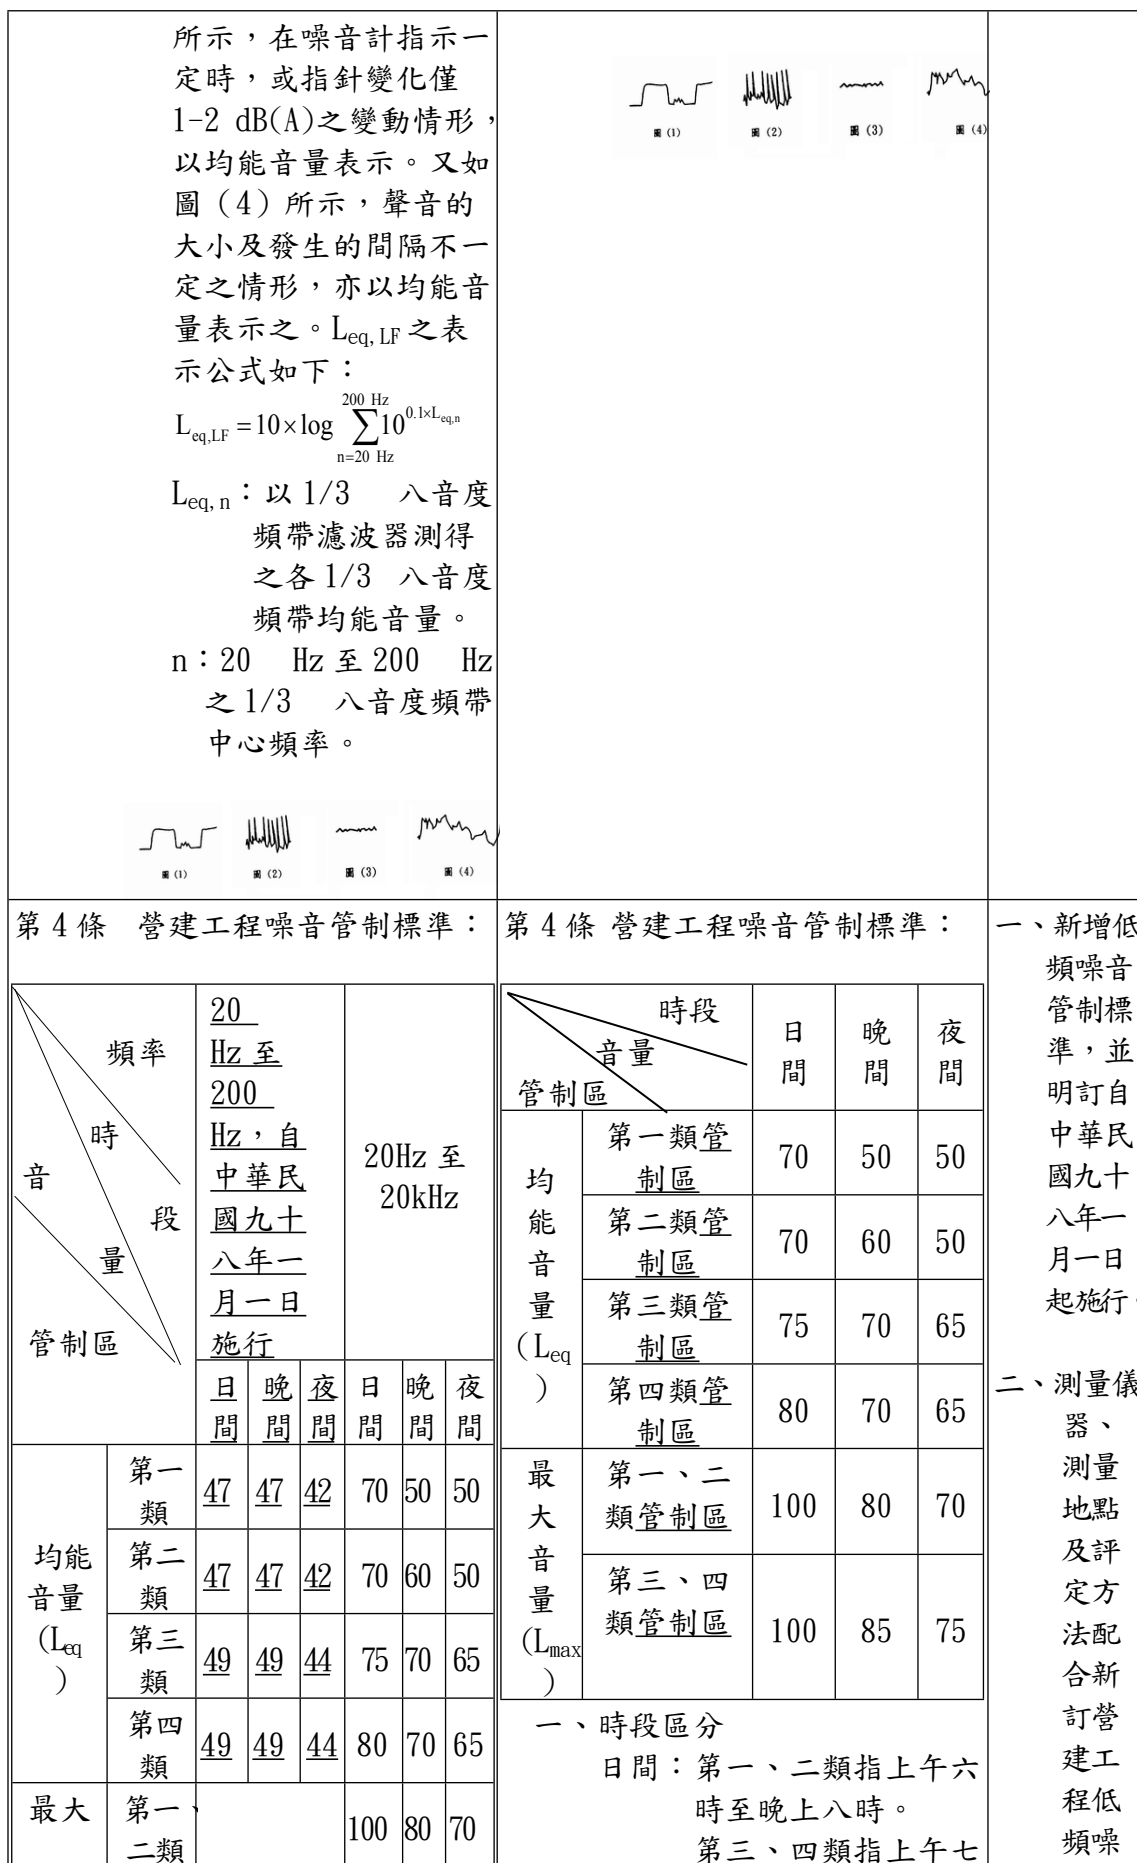 所示，在噪音計指示一
定時，或指針變化僅
1-2 dB(A)之變動情形，
以均能音量表示。又如
圖（4）所示，聲音的
大小及發生的間隔不一
定之情形，亦以均能音
量表示之。Leq, LF之表
示公式如下：
Leq,LF = 10×log ∑(n=20 Hz, 200 Hz) 10^(0.1×Leq,n)
Leq, n：以 1/3 八音度
頻帶濾波器測得
之各 1/3 八音度
頻帶均能音量。
n：20 Hz 至 200 Hz
之 1/3 八音度頻帶
中心頻率。
圖 (1) 圖 (2) 圖 (3) 圖 (4)
圖 (1) 圖 (2) 圖 (3) 圖 (4)
第 4 條 營建工程噪音管制標準：
頻率
時
段
音
量
管制區
20
Hz 至
200
Hz，自
中華民
國九十
八年一
月一日
施行
20Hz 至
20kHz
日間 晚間 夜間 日間 晚間 夜間
均能
音量
(Leq
)
第一類 47 47 42 70 50 50
第二類 47 47 42 70 60 50
第三類 49 49 44 75 70 65
第四類 49 49 44 80 70 65
最大
第一、
二類 100 80 70
第 4 條 營建工程噪音管制標準：
時段
音量
管制區
日間 晚間 夜間
均
能
音
量
(Leq
)
第一類管制區 70 50 50
第二類管制區 70 60 50
第三類管制區 75 70 65
第四類管制區 80 70 65
最
大
音
量
(Lmax
)
第一、二
類管制區 100 80 70
第三、四
類管制區 100 85 75
一、時段區分
日間：第一、二類指上午六
時至晚上八時。
第三、四類指上午七
一、新增低
頻噪音
管制標
準，並
明訂自
中華民
國九十
八年一
月一日
起施行
二、測量儀
器、
測量
地點
及評
定方
法配
合新
訂營
建工
程低
頻噪